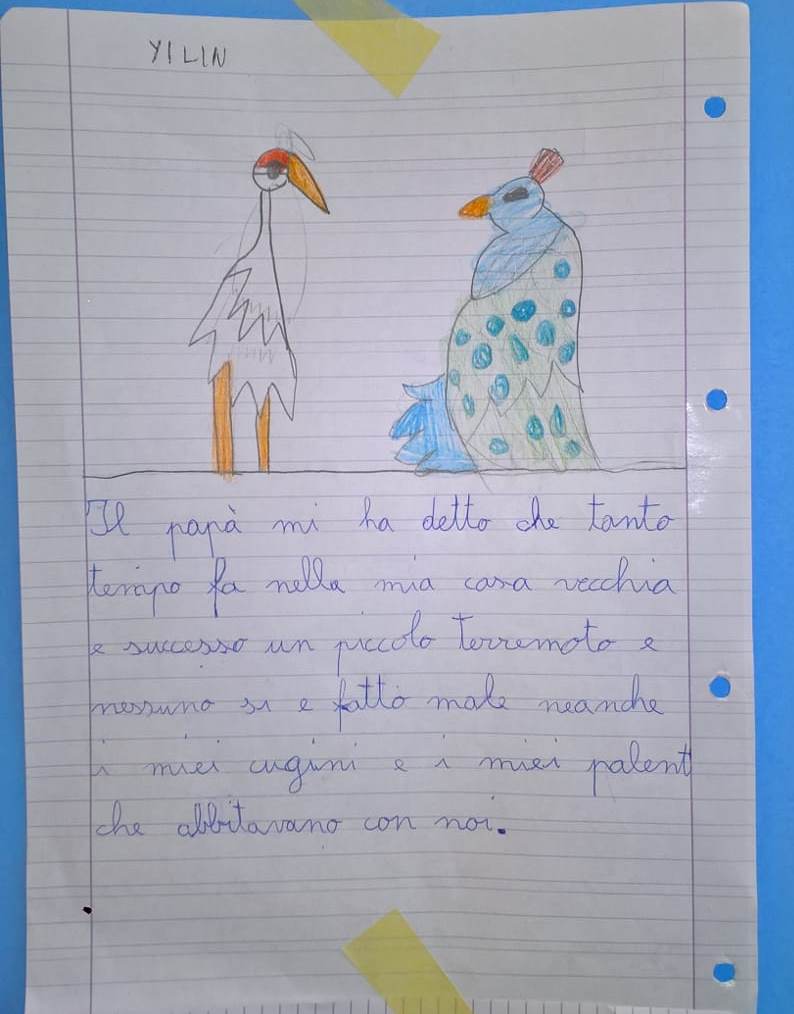 YILIN
Il papà mi ha detto che tanto
tempo fa nella mia casa vecchia
e successo un piccolo terremoto e
nessuno si e fatto male neanche
i miei cugini e i miei palent
che abbitavano con noi.